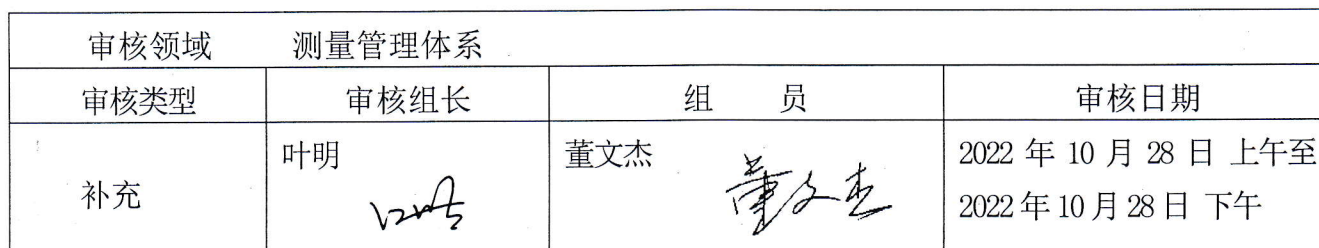 审核领域 测量管理体系
审核类型 审核组长 组 员 审核日期
补充 叶明 董文杰 2022 年 10 月 28 日 上午至
董文杰 2022 年 10 月 28 日 下午